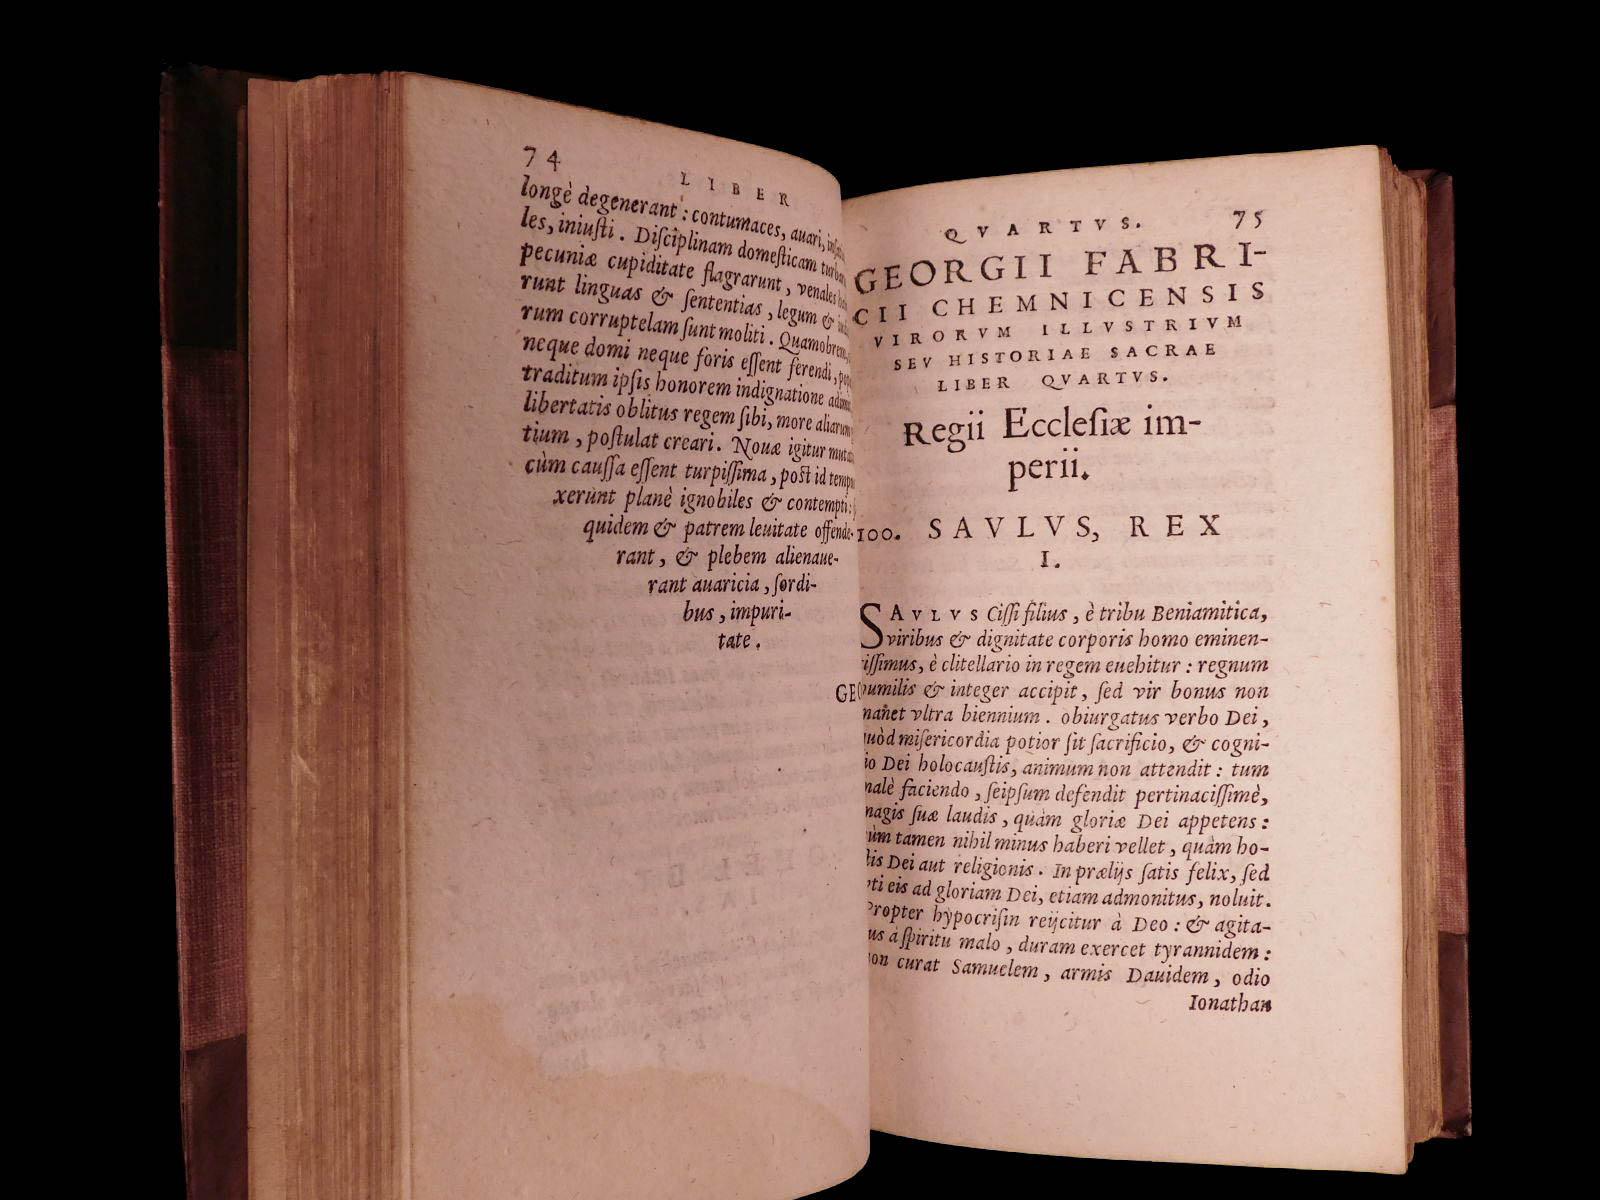 74
LIBER
longè degenerant : contumaces, auari,
les, iniuſti . Diſciplinam domeſticam
pecuniæ cupiditate flagrarunt , venales
runt linguas & ſententias , legum &
rum corruptelam ſunt moliti . Quamobrem,
neque domi neque foris eſſent ferendi ,
traditum ipſis honorem indignatione
libertatis oblitus regem ſibi, more aliarum
tium , poſtulat creari . Nouæ igitur
cùm cauſſa eſſent turpiſſima , poſt id
xerunt planè ignobiles & contempti :
quidem & patrem leuitate offende-
rant , & plebem alienaue-
rant auaricia , ſordi-
bus , impuri-
tate .
QVARTVS. 75
GEORGII FABRI-
CII CHEMNICENSIS
VIRORVM ILLVSTRIVM
SEV HISTORIAE SACRAE
LIBER QVARTVS.
Regii Eccleſiæ im-
perii.
100. SAVLVS, REX
I.
SAVLVS Ciſſi filius , è tribu Beniamitica,
viribus & dignitate corporis homo eminen-
tiſſimus, è clitellario in regem euehitur : regnum
humilis & integer accipit , ſed vir bonus non
manet vltra biennium . obiurgatus verbo Dei ,
quòd miſericordia potior ſit ſacrificio, & cogni-
tio Dei holocauſtis, animum non attendit : tum
malè faciendo , ſeipſum defendit pertinaciſſimè,
magis ſuæ laudis , quàm gloriæ Dei appetens :
cùm tamen nihil minus haberi vellet , quàm ho-
ſtis Dei aut religionis . In prælijs ſatis felix, ſed
vti eis ad gloriam Dei, etiam admonitus, noluit .
Propter hypocriſin reijcitur à Deo : & agita-
tus à ſpiritu malo , duram exercet tyrannidem :
non curat Samuelem , armis Dauidem , odio
Ionathan